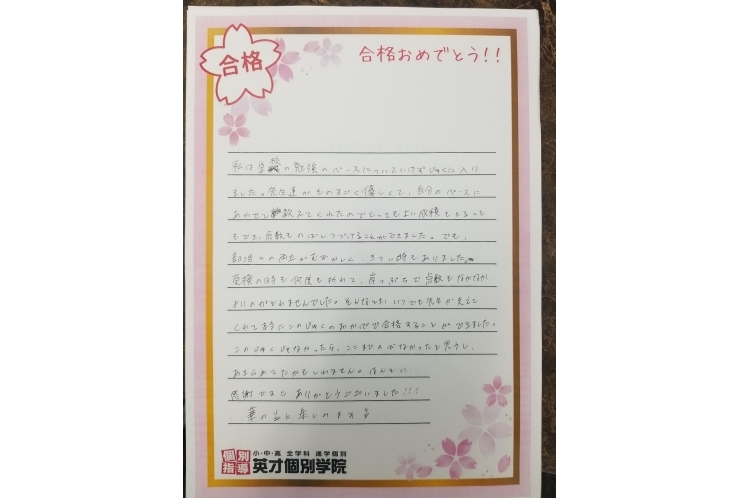 合格
合格おめでとう!!
私は学校の勉強のペースについていけずじゅくに入り
ました。先生達がものすごく優しくて、自分のペースに
あわせて教えてくれたのでとってもよい成績をとること
もでき、点数ものばしつづけることができました。でも、
部活との両立がむずかしく きつい時もありました。
英検の時も何度も折れて、点数もなかなか
よいのがとれませんでした。そんなときいつでも先生が支えて
くれて またこのじゅくのおかげで合格することができました。
このじゅくじゃなかったら、ここまでのびなかったと思うし、
あきらめてたかもしれません。ほんとに
感謝です ありがとうございました!!!
楽しみます
個別指導
小・中・高 全学科 進学個別
英才個別学院